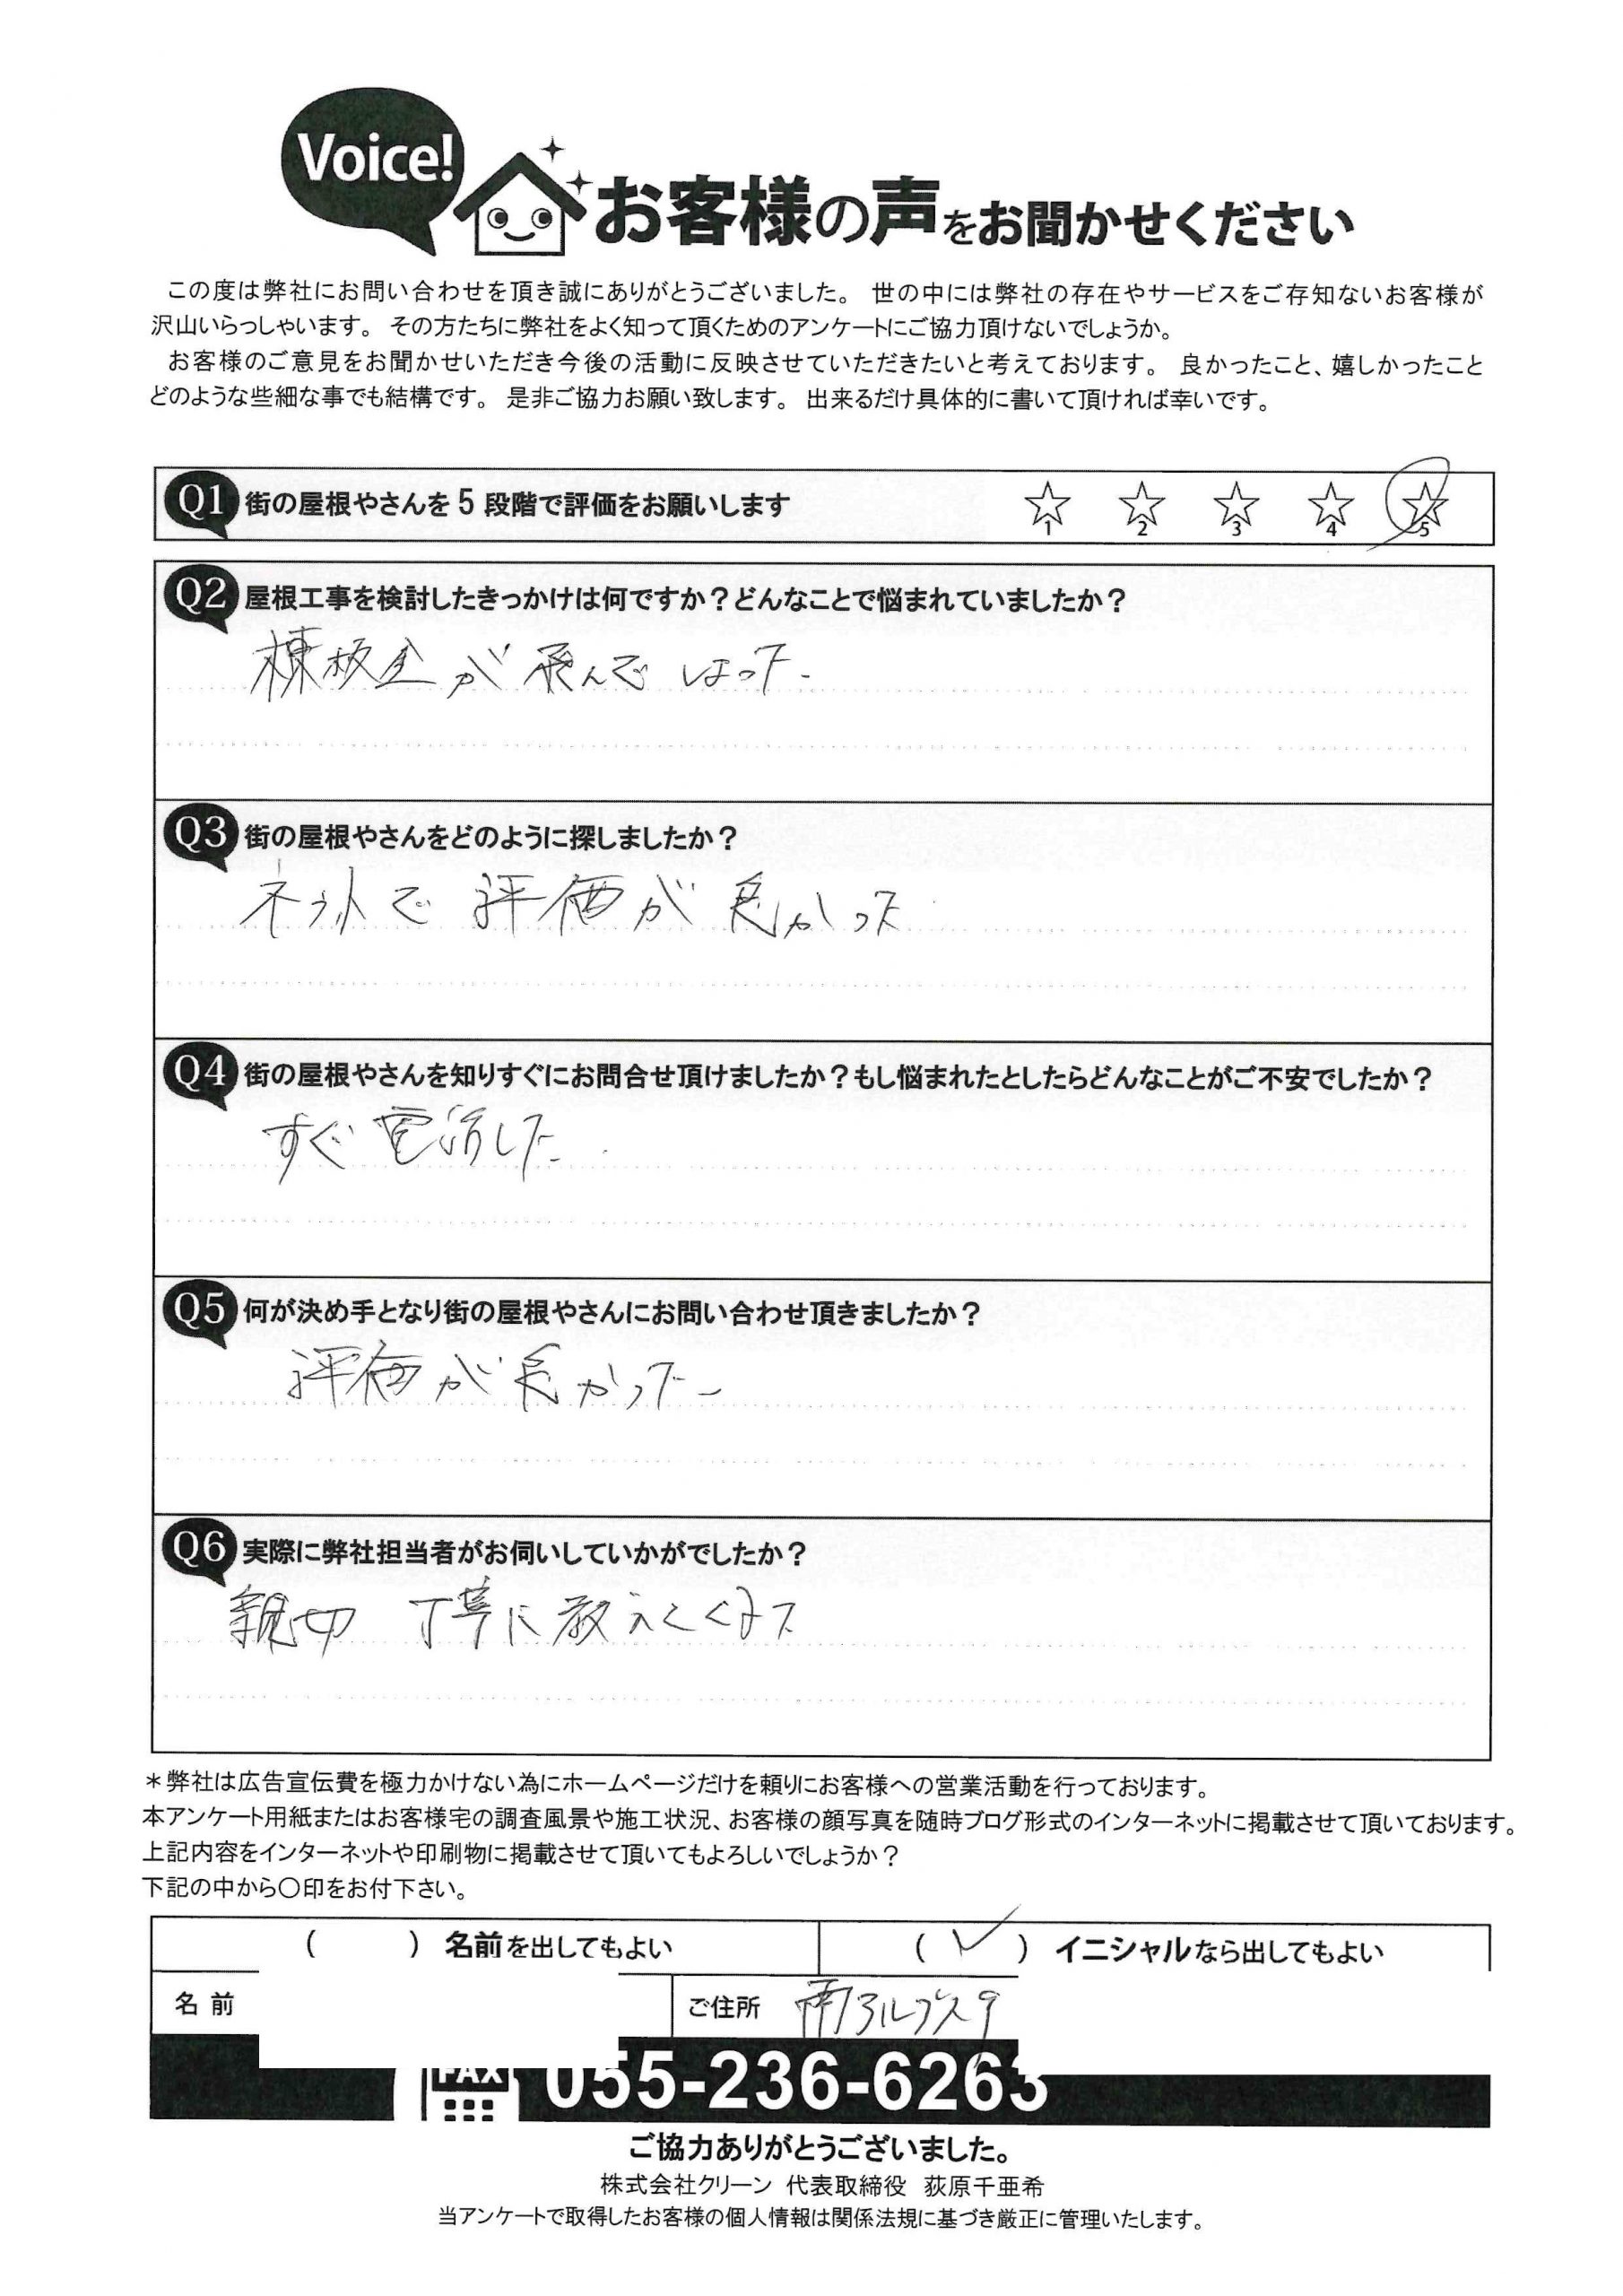 Voice!
お客様の声をお聞かせください
この度は弊社にお問い合わせを頂き誠にありがとうございました。 世の中には弊社の存在やサービスをご存知ないお客様が
沢山いらっしゃいます。 その方たちに弊社をよく知って頂くためのアンケートにご協力頂けないでしょうか。
お客様のご意見をお聞かせいただき今後の活動に反映させていただきたいと考えております。 良かったこと、嬉しかったこと
どのような些細な事でも結構です。 是非ご協力お願い致します。 出来るだけ具体的に書いて頂ければ幸いです。
Q1 街の屋根やさんを5段階で評価をお願いします
1 2 3 4 5
Q2 屋根工事を検討したきっかけは何ですか?どんなことで悩まれていましたか?
棟板金が飛んでしまった。
Q3 街の屋根やさんをどのように探しましたか?
ネットで評価が良かった
Q4 街の屋根やさんを知りすぐにお問合せ頂けましたか?もし悩まれたとしたらどんなことがご不安でしたか?
すぐ電話した。
Q5 何が決め手となり街の屋根やさんにお問い合わせ頂きましたか?
評価が良かった。
Q6 実際に弊社担当者がお伺いしていかがでしたか?
親切 丁寧に教えてくれた
＊弊社は広告宣伝費を極力かけない為にホームページだけを頼りにお客様への営業活動を行っております。
本アンケート用紙またはお客様宅の調査風景や施工状況、お客様の顔写真を随時ブログ形式のインターネットに掲載させて頂いております。
上記内容をインターネットや印刷物に掲載させて頂いてもよろしいでしょうか?
下記の中から〇印をお付下さい。
( ) 名前を出してもよい (✓) イニシャルなら出してもよい
名前 ご住所 南アルプス市
FAX 055-236-6263
ご協力ありがとうございました。
株式会社クリーン 代表取締役 荻原千亜希
当アンケートで取得したお客様の個人情報は関係法規に基づき厳正に管理いたします。